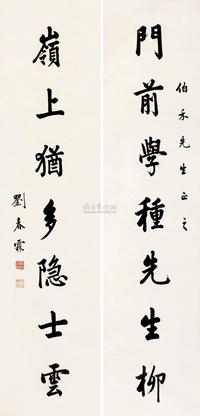 伯禾先生正之
門前學種先生柳
嶺上猶多隐士雲
劉春霖